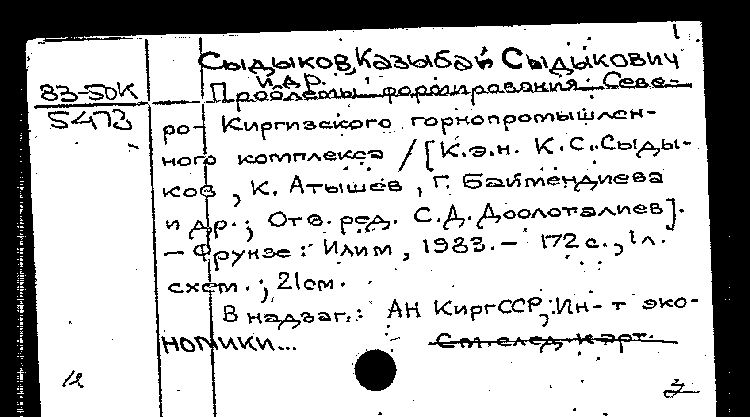 Сыдыков, Казыбай Сыдыкович
и др.
83-50К
5473
Проблемы формирования Севе-
ро-Киргизского горнопромышлен-
ного комплекса / [К.э.н. К.С. Сыды-
ков, К. Атышев, Г. Баймендиева
и др.; Отв. ред. С.Д. Доолоталиев].
— Фрунзе: Илим, 1983. — 172 с., 1 л.
схем.; 21 см.
В надзаг.: АН КиргССР, Ин-т эко-
номики...
См. след. карт.